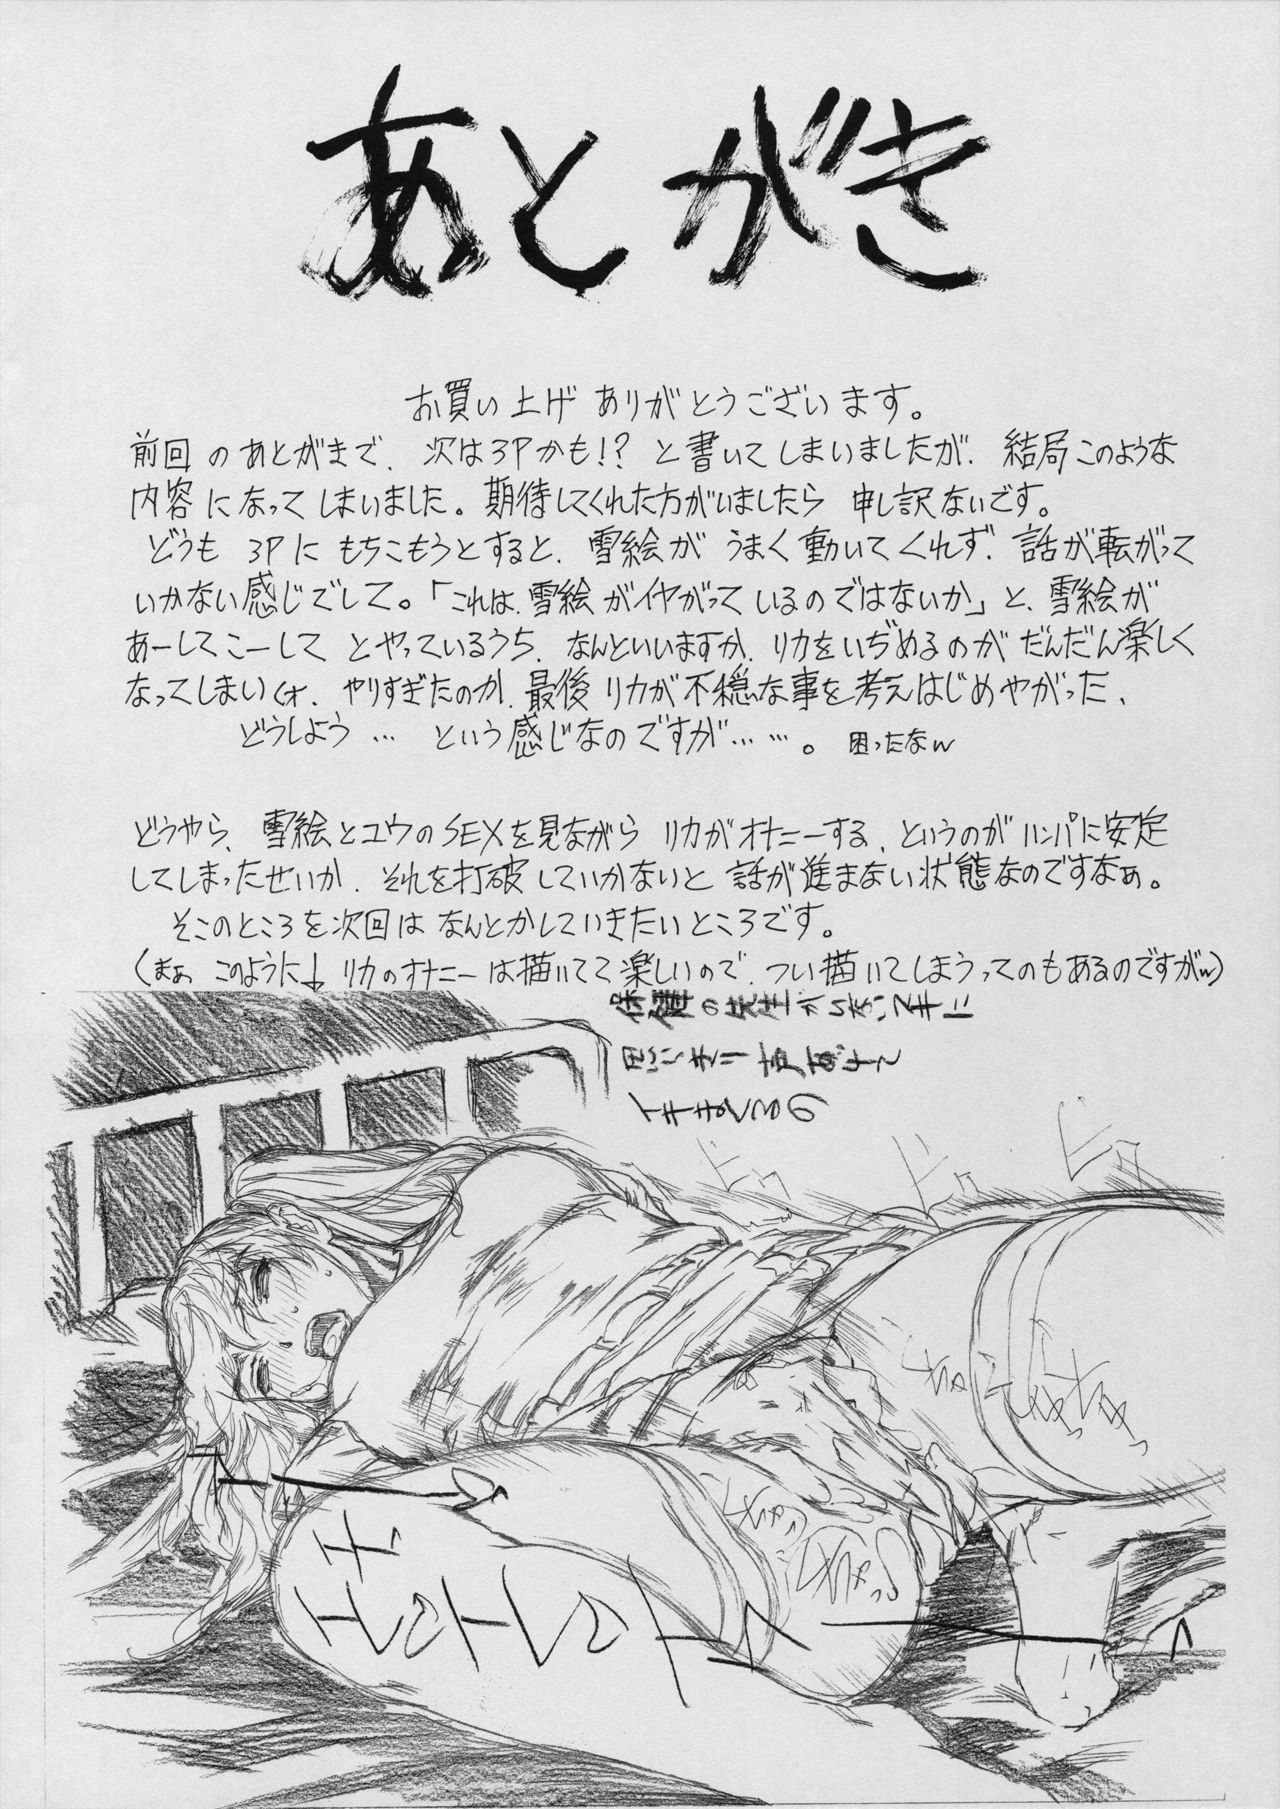 あとがき
お買い上げ ありがとうございます。
前回のあとがきで、次は3Pかも!? と書いてしまいましたが、結局このような
内容になってしまいました。期待してくれた方がいましたら 申し訳ないです。
どうも 3Pに もちこもうとすると、雪絵が うまく動いてくれず、話が転がって
いかない感じでして。「これは、雪絵がイヤがっているのではないか」と、雪絵が
あーしてこーして とやっているうち、なんといいますか、リカをいぢめるのが だんだん楽しく
なってしまい(オ、やりすぎたのか、最後 リカが不穏な事を考えはじめやがった、
どうしよう … という感じなのですが……。困ったなw
どうやら、雪絵とユウのSEXを見ながら リカがオナニーする、というのがハンパに安定
してしまったせいか、それを打破していかないと 話が進まない状態なのですなぁ。
そこのところを次回は なんとかしていきたいところです。
(まぁ このように↓ リカのオナニーは描いてて楽しいので、つい描いてしまうってのもあるのですがw)